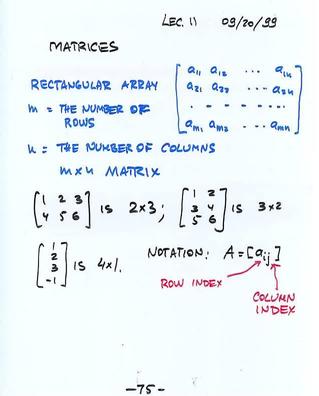 LEC. 11 09/20/99
MATRICES
RECTANGULAR ARRAY
[ a11 a12 ... a1n
a21 a22 ... a2n
. - - - - - .
am1 am2 ... amn ]
m = THE NUMBER OF
ROWS
n = THE NUMBER OF COLUMNS
m×n MATRIX
[ 1 2 3
4 5 6 ] IS 2×3; [ 1 2
3 4
5 6 ] IS 3×2
[ 1
2
3
-1 ] IS 4×1.
NOTATION: A = [aij]
ROW INDEX
COLUMN
INDEX
-75-